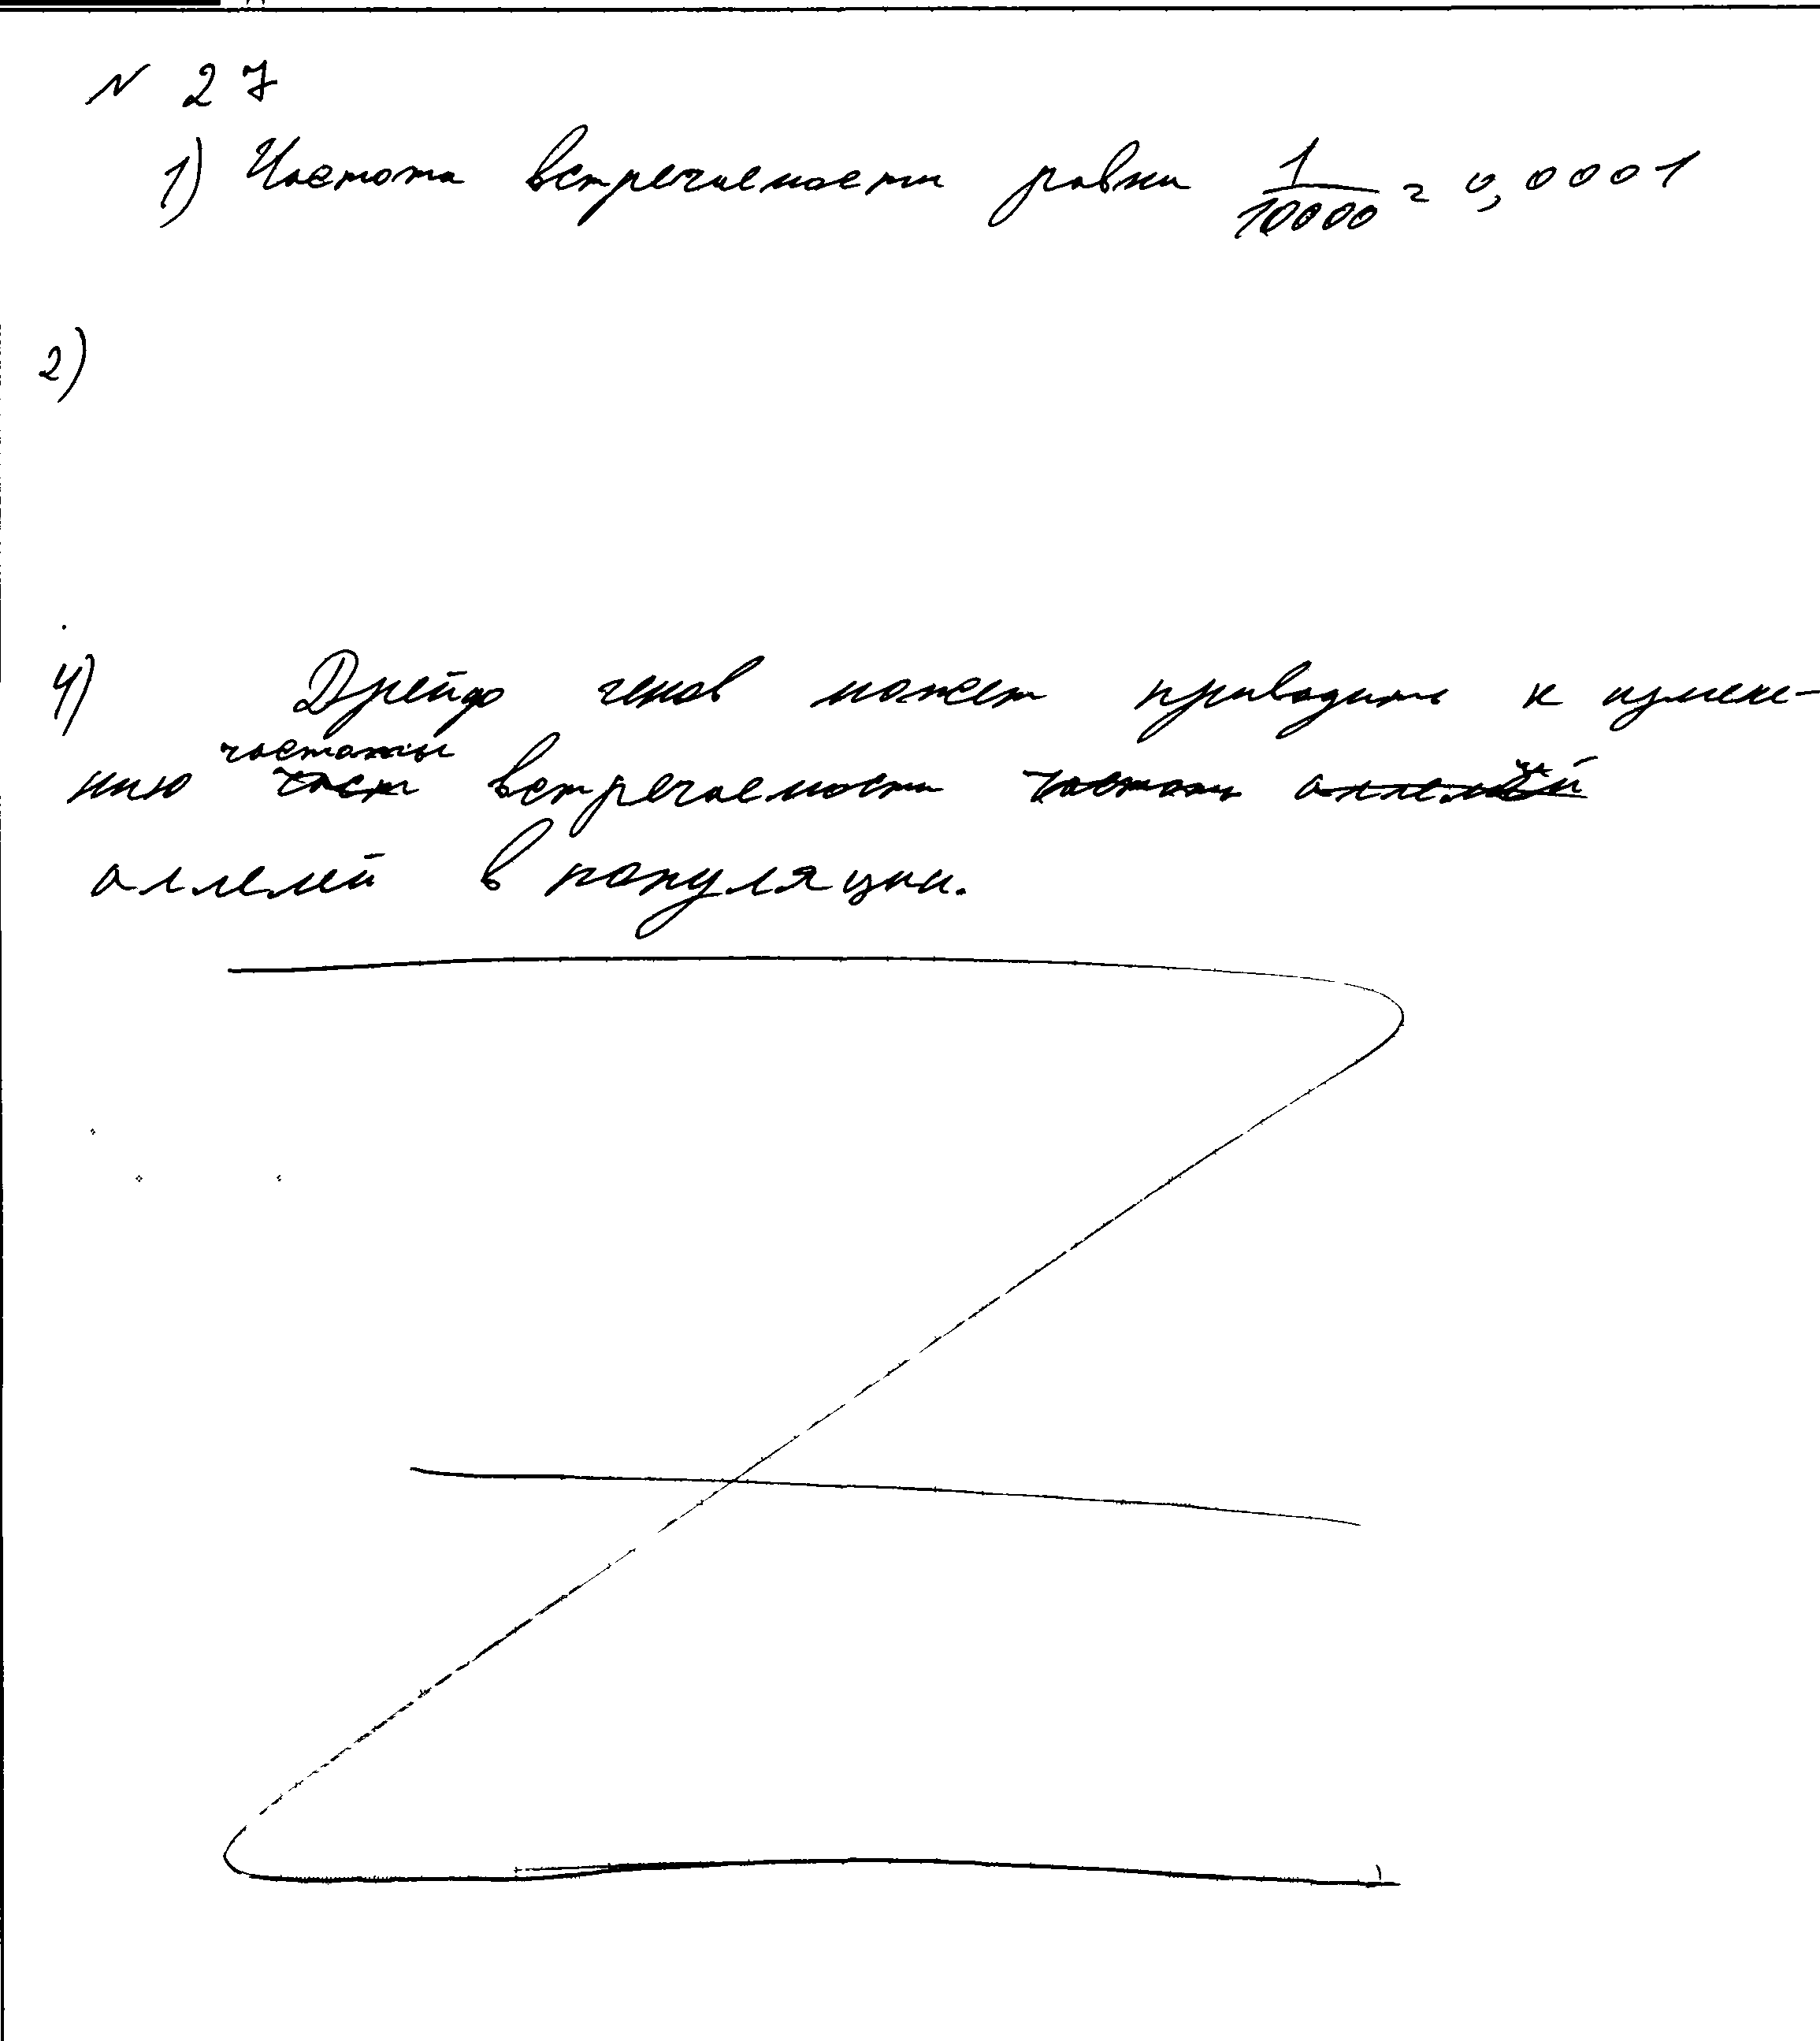 N 27
1) Частота встречаемости равна 1/10000 = 0,0001
2)
4) Дрейф генов может приводить к измене-
нию частоты встречаемости
аллелей в популяции.